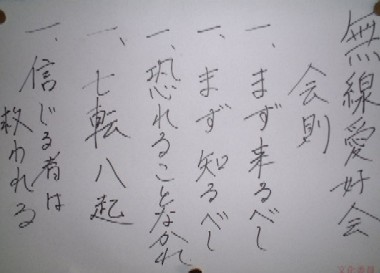 無線愛好会
会則
一、まず来るべし
一、まず知るべし
一、恐れることなかれ
一、七転八起
一、信じる者は
救われる